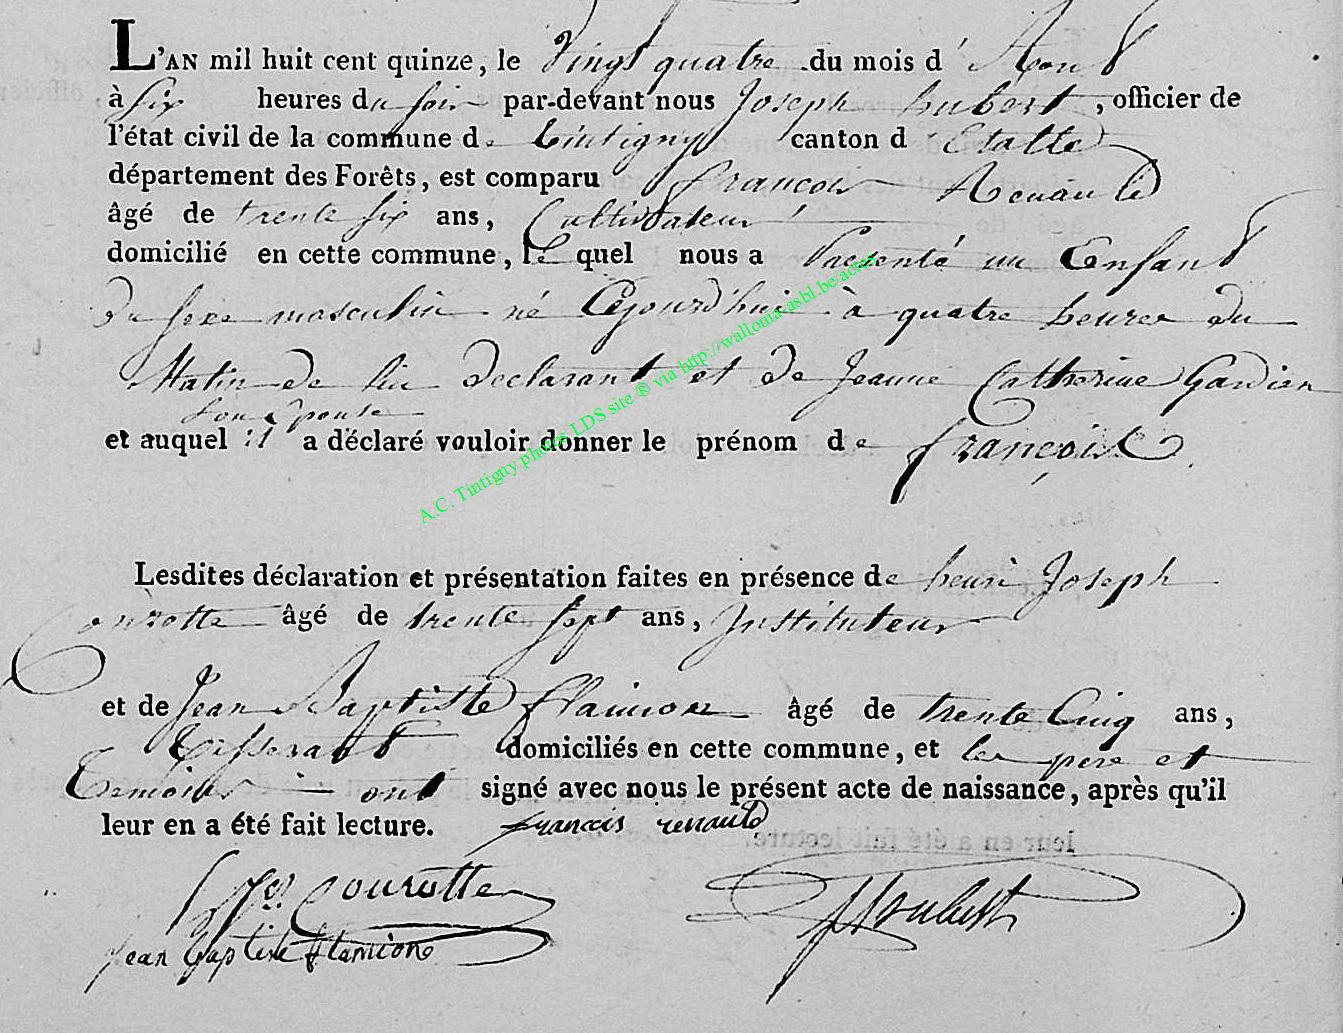 L'AN mil huit cent quinze, le Vingt quatre du mois d' Aout
à six heures du soir par-devant nous Joseph hubert, officier de
l'état civil de la commune de tintigny canton d Etalle
département des Forêts, est comparu françois Renauld
âgé de trente six ans, Cultivateur
domicilié en cette commune, le quel nous a Presenté un Enfant
du sexe masculin né Cejourd'hui à quatre heures du
Matin de lui declarant et de Jeanne Catherine Gardien
son Epouse
et auquel il a déclaré vouloir donner le prénom de françois
A.C. Tintigny photos LDS site ® via http://wallonia-asbl.be/actes
Lesdites déclaration et présentation faites en présence de henri Joseph
Courotte âgé de trente sept ans, Instituteur
et de Jean Baptiste flamion âgé de trente Cinq ans,
tisserant domiciliés en cette commune, et les pere et
temoins ont signé avec nous le présent acte de naissance, après qu'il
leur en a été fait lecture. francois renauld
Courotte
Jean baptiste flamion